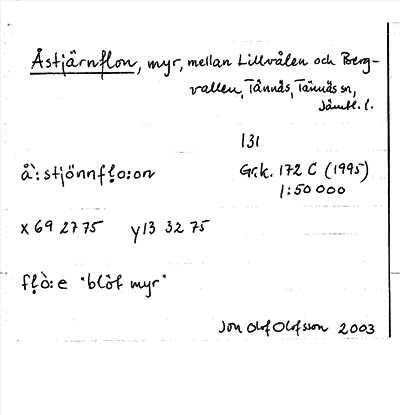 Åstjärnflon, myr, mellan Lillvålen och Berg-
vallen, Tännäs, Tännäs sn,
Jämtl. l.
131
å`:stjönnfḷo:on
Gr.k. 172 C (1995)
1:50 000
x 69 27 75 y 13 32 75
fḷò:e "blöt myr"
Jon Olof Olofsson 2003